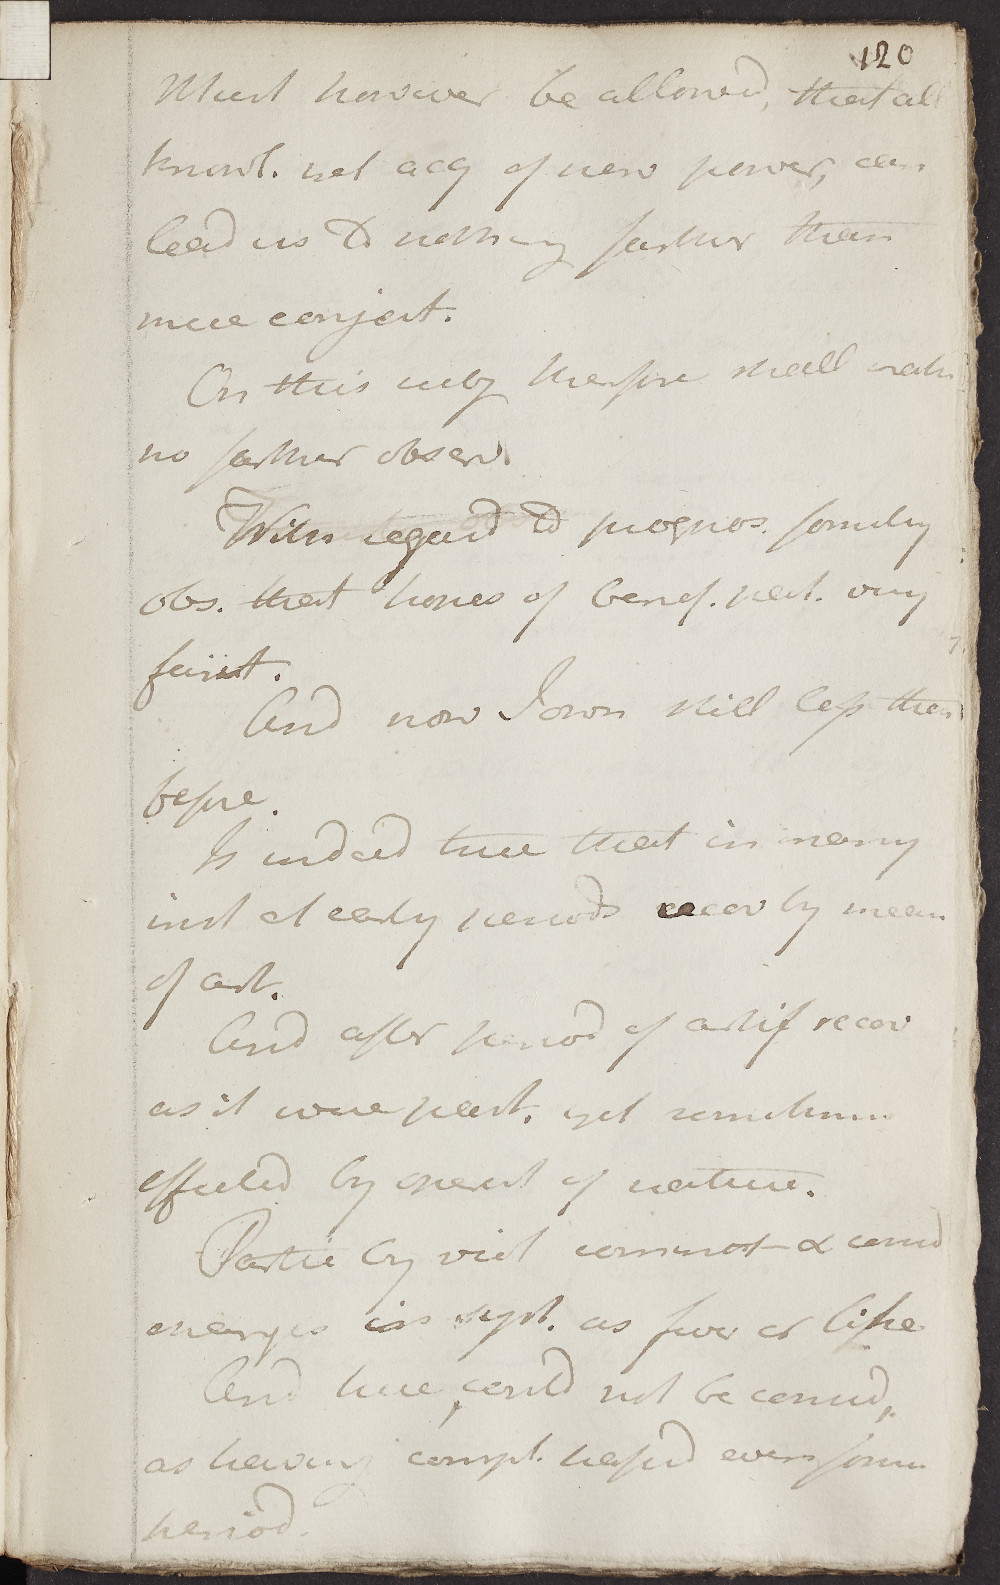 120
Must however be allowed, that all
knowl. not acq of new power, can
lead us to nothing farther than
mere conject.
On this subj therefore shall make
no farther observ.
With regard to prognos. formerly
obs. that hopes of benef. pat. very
faint.
And now I own still less than
before.
Is indeed true that in many
inst at early periods recov by mean
of art.
And after period of artif recov
as it were past. yet sometimes
effected by operat of nature.
Partic by viol commot & consid
changes in syst. as fever or like
And here, could not be consid,
as having compl. passed even former
period.